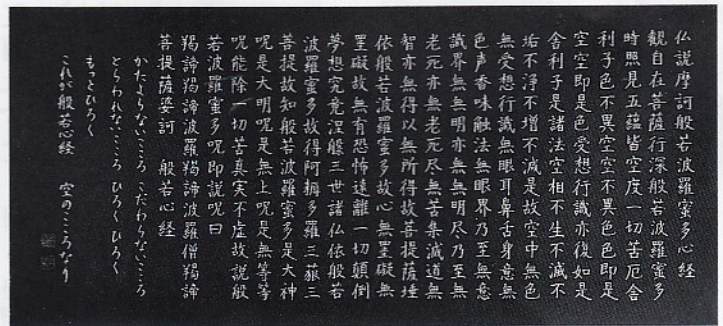 仏説摩訶般若波羅蜜多心経
観自在菩薩行深般若波羅蜜多
時照見五蘊皆空度一切苦厄舎
利子色不異空空不異色色即是
空空即是色受想行識亦復如是
舎利子是諸法空相不生不滅不
垢不浄不増不減是故空中無色
無受想行識無眼耳鼻舌身意無
色声香味触法無眼界乃至無意
識界無無明亦無無明尽乃至無
老死亦無老死尽無苦集滅道無
智亦無得以無所得故菩提薩埵
依般若波羅蜜多故心無罣礙無
罣礙故無有恐怖遠離一切顛倒
夢想究竟涅槃三世諸仏依般若
波羅蜜多故得阿耨多羅三藐三
菩提故知般若波羅蜜多是大神
呪是大明呪是無上呪是無等等
呪能除一切苦真実不虚故説般
若波羅蜜多呪即説呪曰
羯諦羯諦波羅羯諦波羅僧羯諦
菩提薩婆訶　般若心経
かたよらないこころ こだわらないこころ
とらわれないこころ ひろくひろく
もっとひろく
これが般若心経　空のこころなり